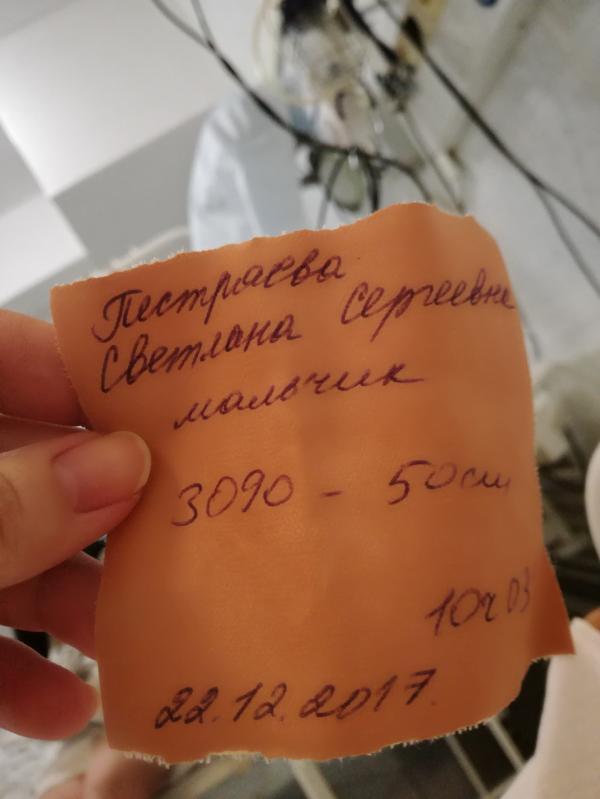 Пестряева
Светлана Сергеевна
мальчик
3090 - 50см
10ч 03
22.12.2017.